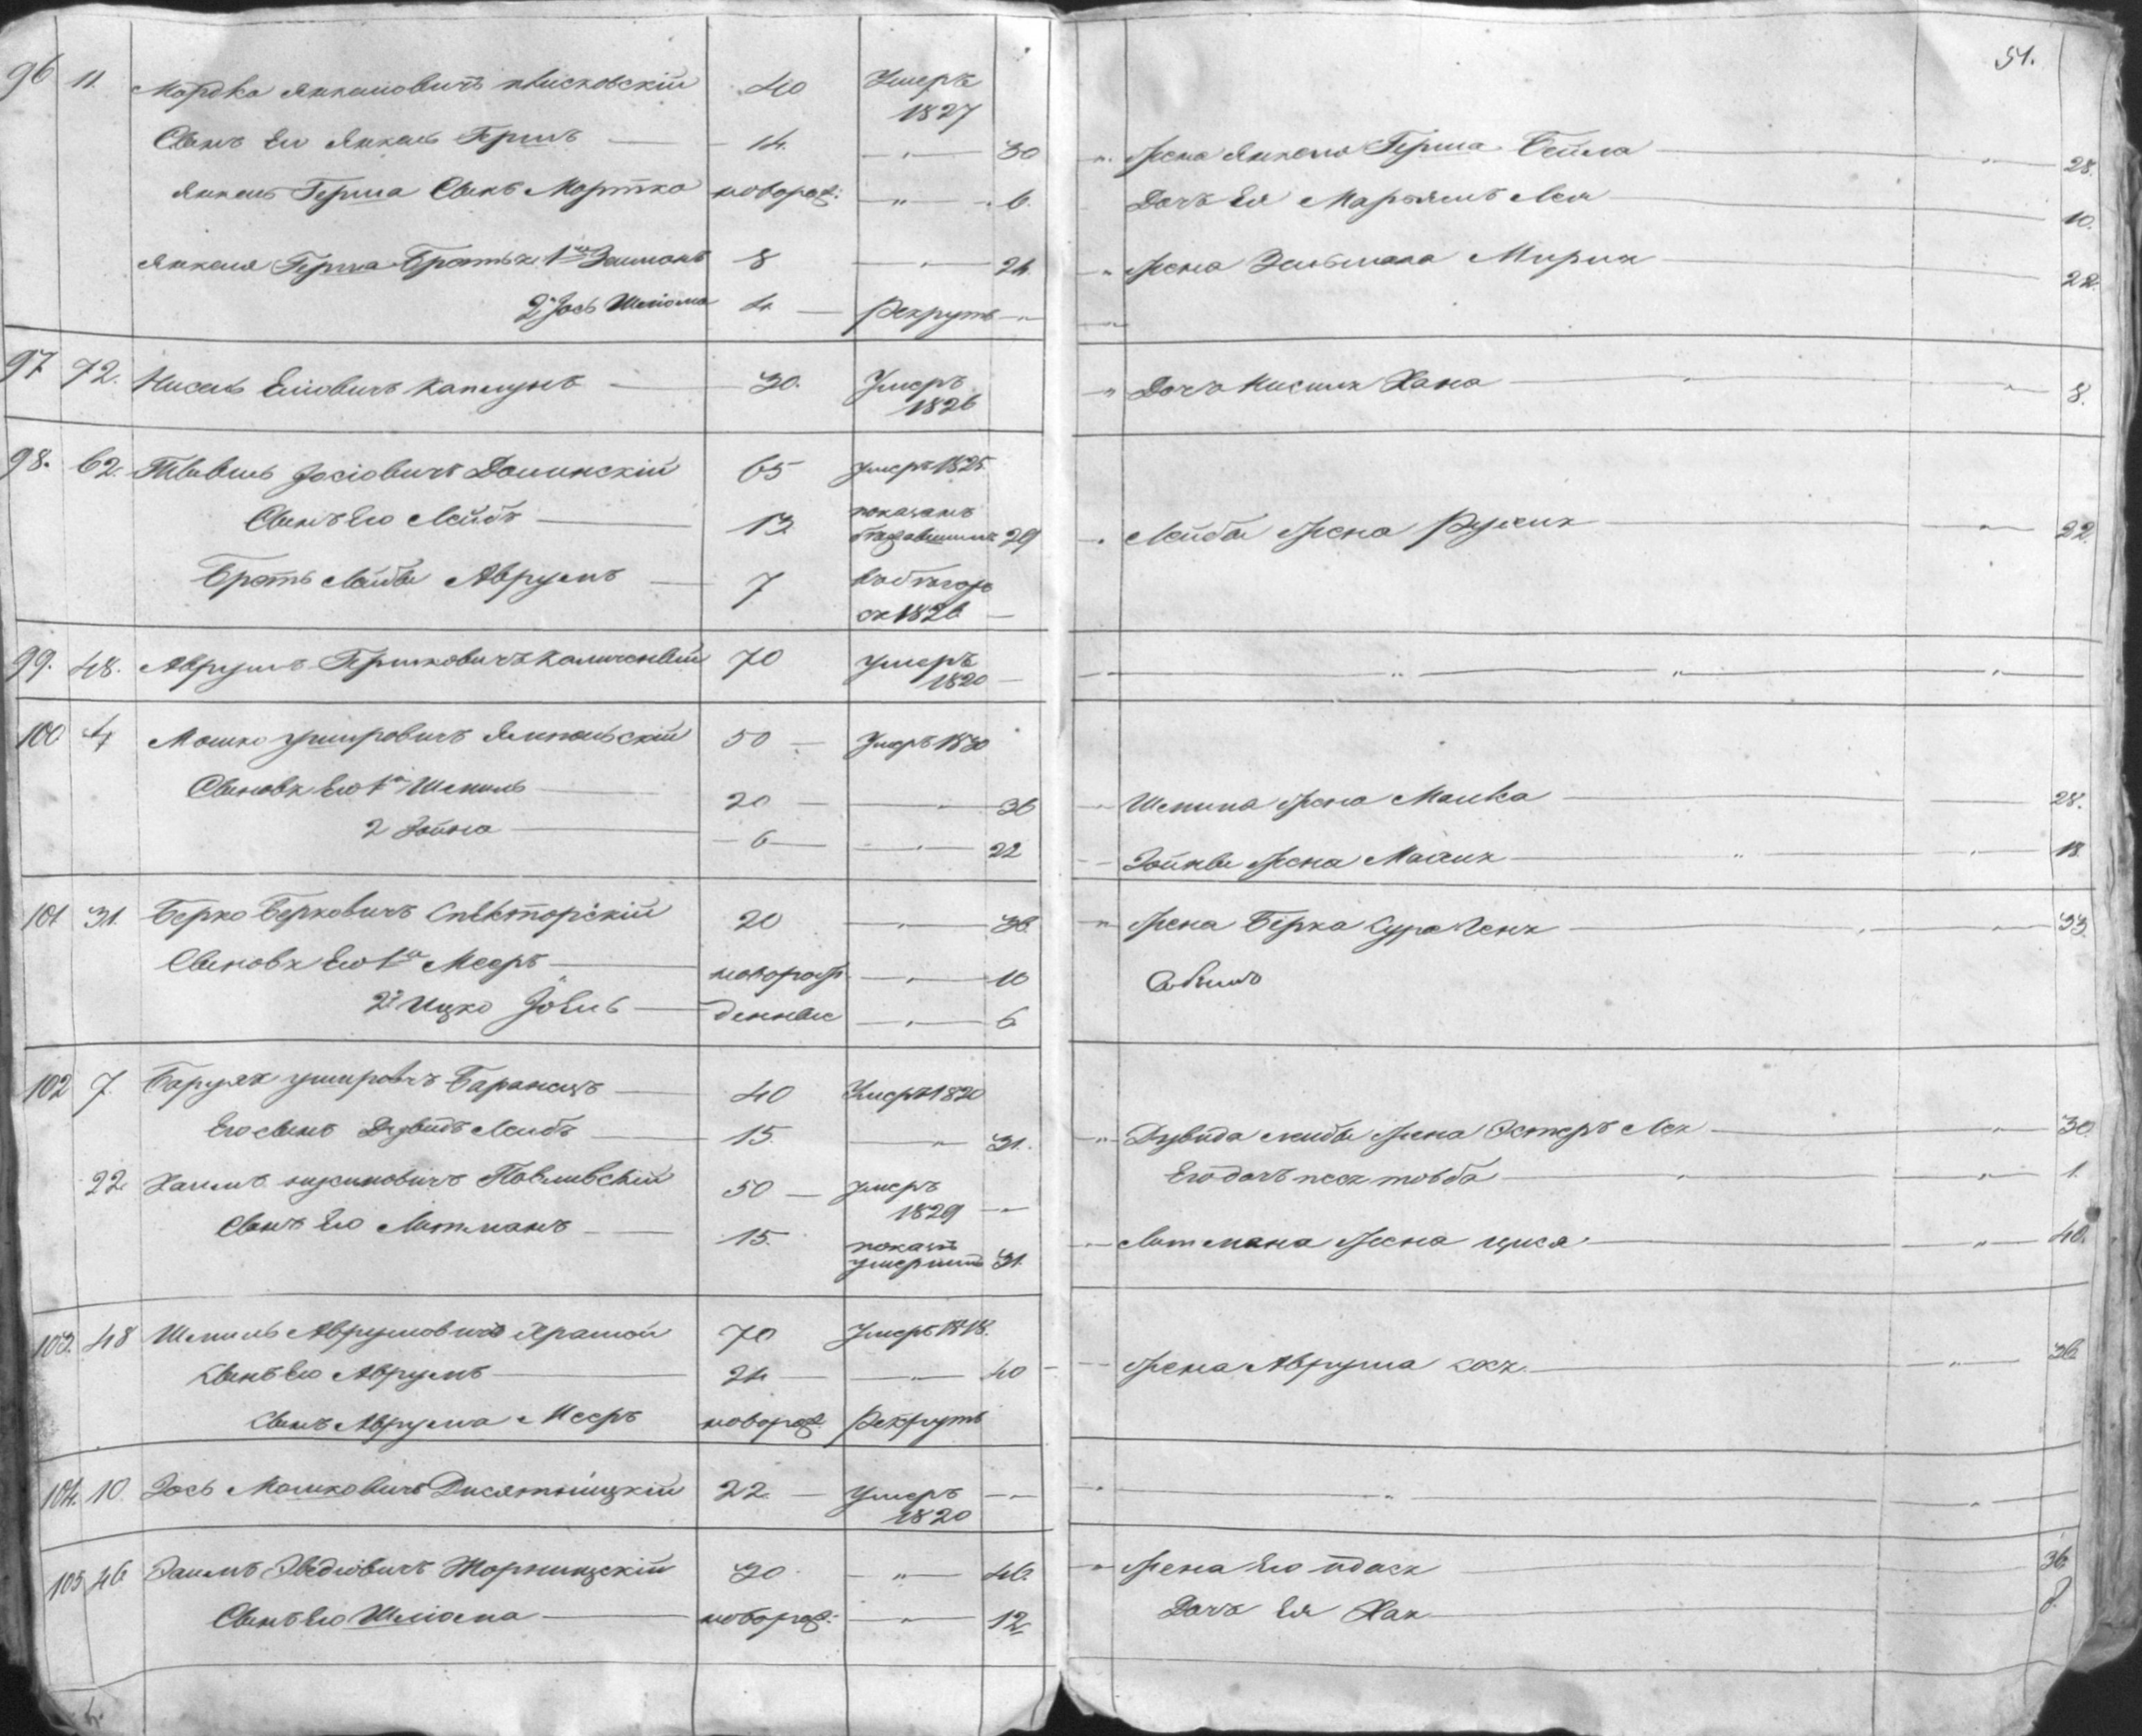 51.
96 11. Мордко Янкелевичъ Лисковскій 40 Умеръ 1827
Сынъ Его Янкель Гершъ 14. 30
Янкель Герша Сынъ Мортко новорож: 6.
Янкеля Герша Братья 1й Зельманъ 8 24
2й Іось Шліома 4. Рекрутъ
97 72. Нисель Еліовичъ Каплунъ 30. Умеръ 1826
98. 62. Іосіовичъ Долинскій 65 умеръ 1825.
Сынъ Его Лейбъ 13. показанъ 29
Братъ Лейбы Аврумъ 7 1826
99. 48. Аврумъ Гершковичъ 70 умеръ 1820
100 4 Мошко Ушировичъ Ямпольскій 50 Умеръ 1830
Сыновя Его 1й Шмиль 20 36
2 Зойна 6 22
101 31. Берко Берковичъ Спекторскій 20 36
Сыновя Его 1й Мееръ новорож 10
2й Ицко Іовль денные 6
102 7. Барухъ Ушировичъ Баранецъ 40 Умеръ 1820
Его сынъ Дувидъ Лейбъ 15. 31.
22. Хаимъ 50 умеръ 1829
Сынъ Его Литманъ 15. показ умершимъ 31.
103. 48 Шмиль Аврумовичъ 70 Умеръ 1818.
Сынъ Его Аврумъ 24 40
Сынъ Аврума Мееръ новорож. Рекрутъ
104. 10. Іось Мошковичъ Дисятницкій 22. Умеръ 1820
105 46 Хаимъ Жорницскій 30 46.
Сынъ Его Шліома новорож: 12.
Жена Янкеля Герша Бейла 28.
Дочъ Ея Марьямъ Лея 10.
Жена Зельмана Мирия 22.
Дочъ Нисиля Хана 8.
Лейбы Жена Рухля 22.
Шмиля Жена Малка 28.
Зойны Жена Масия 18.
Жена Берка Сура Геня 33.
Дувида Лейбы Жена Эстеръ Лея 30
Его дочъ песя товба 1.
Литмана Жена цися 40.
Жена Аврума хая. 36
Жена Его 36
Дочъ Ея Хая 8.